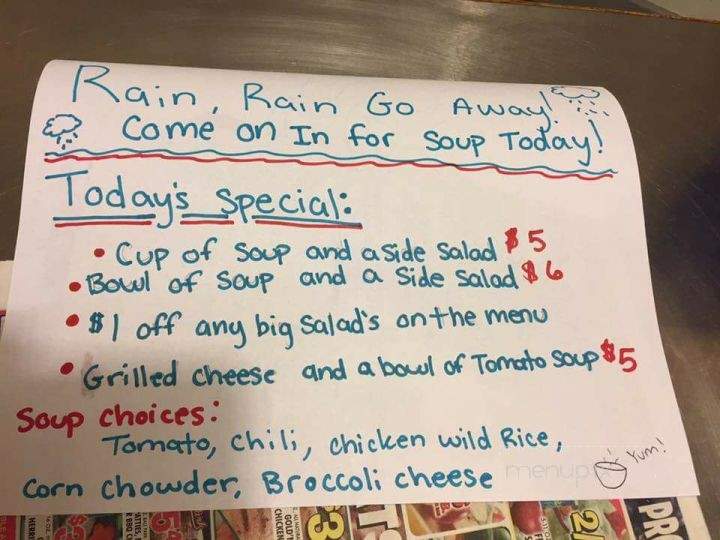 Rain, Rain Go Away!
Come on In for Soup Today!
Today's Special:
• Cup of Soup and a side Salad $5
• Bowl of Soup and a Side Salad $6
• $1 off any big Salad's on the menu
• Grilled cheese and a bowl of Tomato Soup $5
Soup choices:
Tomato, Chili, chicken wild Rice,
Corn chowder, Broccoli cheese
Yum!
menup
PR
2/
$3
CHICKEN